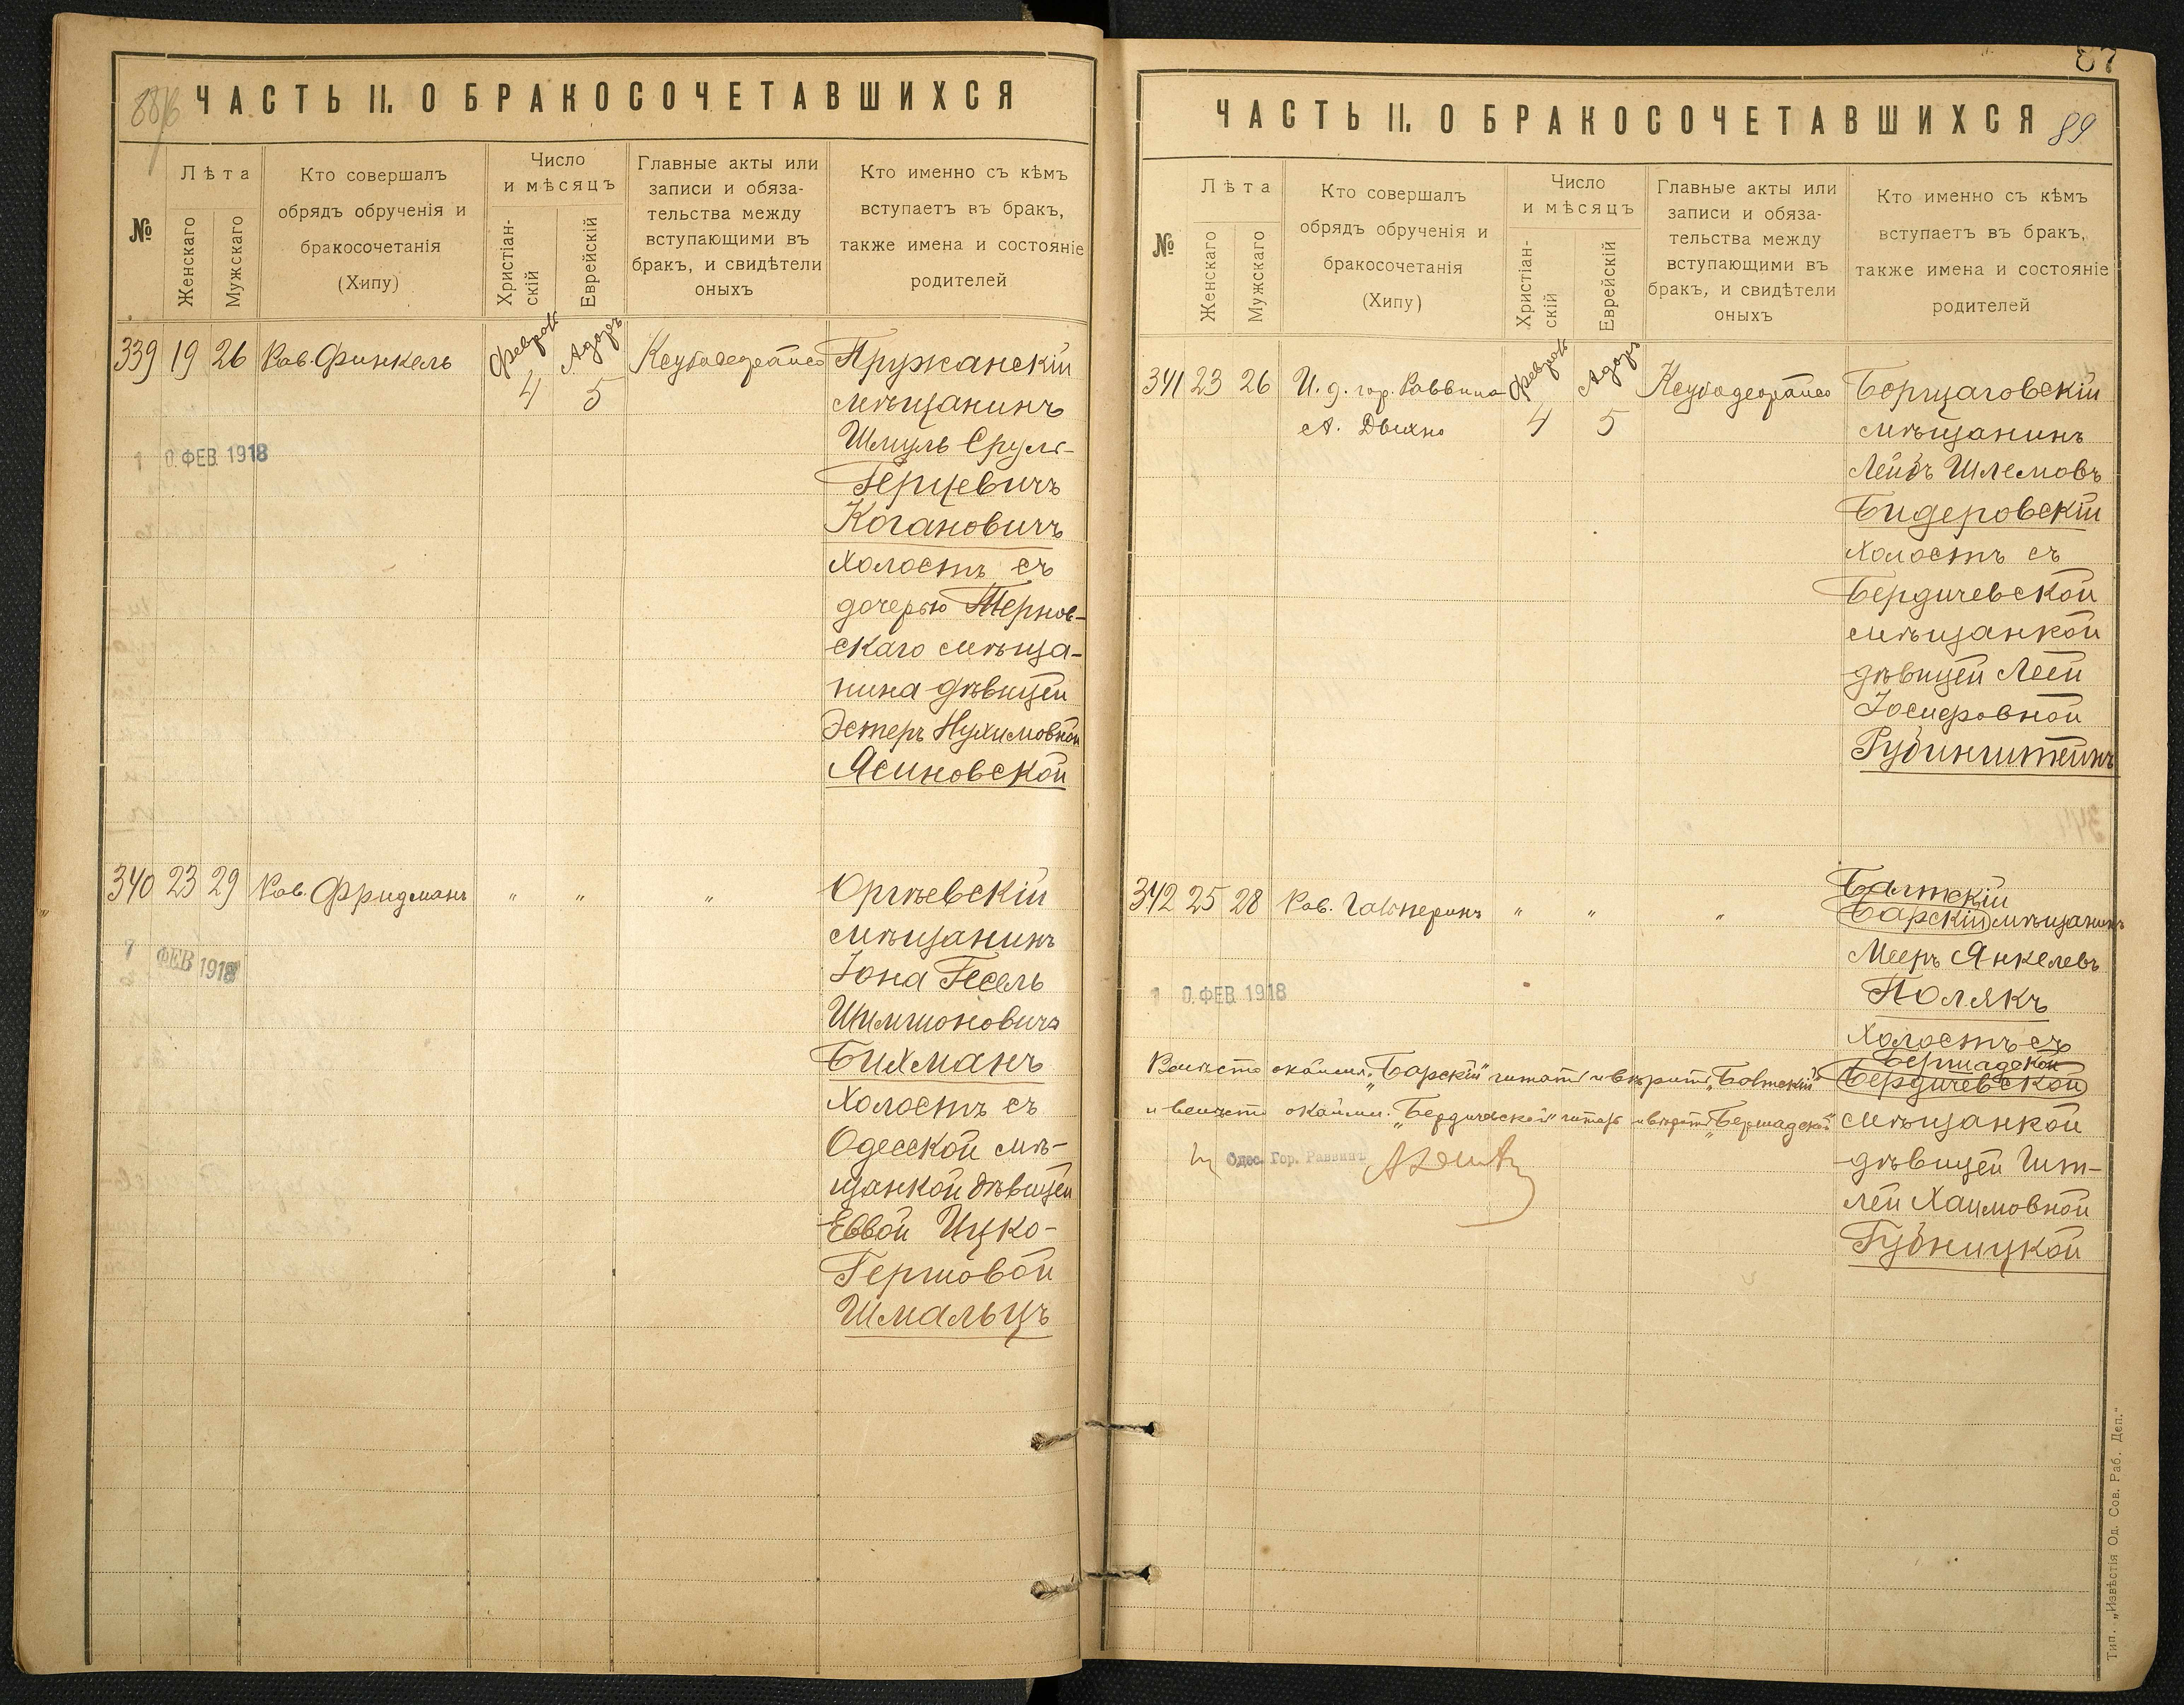 ЧАСТЬ II. О БРАКОСОЧЕТАВШИХСЯ
№
Лѣта
Женскаго
Мужскаго
Кто совершалъ
обрядъ обрученія и
бракосочетанія
(Хипу)
Число
и мѣсяцъ
Христіан-
скій
Еврейскій
Главные акты или
записи и обяза-
тельства между
вступающими въ
бракъ, и свидѣтели
оныхъ
Кто именно съ кѣмъ
вступаетъ въ бракъ,
также имена и состояніе
родителей
339 19 26 Рав. Финкель
Феврал
4
Адаръ
5
Пружанскій
мѣщанинъ
Шмуль Сруль-
Герцевичъ
Когановичъ
холостъ съ
дочерью Тернов-
скаго мѣща-
нина дѣвицей
Эстеръ Нухимовной
Ясиновской
10. ФЕВ. 1918
340 23 29 Рав. Фридманъ " " "
Оргѣевскій
мѣщанинъ
Іона Гесель
Шимшоновичъ
Бихманъ
холостъ съ
Одесской мѣ-
щанкой дѣвицей
Еввой Ицко-
Гершовой
Шмальцъ
7 ФЕВ 1918
87
ЧАСТЬ II. О БРАКОСОЧЕТАВШИХСЯ 89
№
Лѣта
Женскаго
Мужскаго
Кто совершалъ
обрядъ обрученія и
бракосочетанія
(Хипу)
Число
и мѣсяцъ
Христіан-
скій
Еврейскій
Главные акты или
записи и обяза-
тельства между
вступающими въ
бракъ, и свидѣтели
оныхъ
Кто именно съ кѣмъ
вступаетъ въ бракъ,
также имена и состояніе
родителей
341 23 26 И. д. гор. Раввина
А.
Феврал
4
Адаръ
5
Борщаговскій
мѣщанинъ
Лейбъ Шлемовъ
Бидеровскій
холостъ съ
Бердичевской
мѣщанкой
дѣвицей Леей
Іосифовной
Рубинштейнъ
342 25 28 Рав. Гальперинъ " " "
Балтскій
Барскій мѣщанинъ
Мееръ Янкелевъ
Полякъ
холостъ съ
Бершадской
Бердичевской
мѣщанкой
дѣвицей Ит-
лей Хаимовной
Гудницкой
10. ФЕВ. 1918
Вмѣсто окаймл. „Барскій" читать и вѣрить „Балтскій"
и вмѣсто окаймл. „Бердичевской" читать и вѣрить „Бершадской"
Одес. Гор. Раввинъ
Тип. „Извѣстія Од. Сов. Раб. Деп."